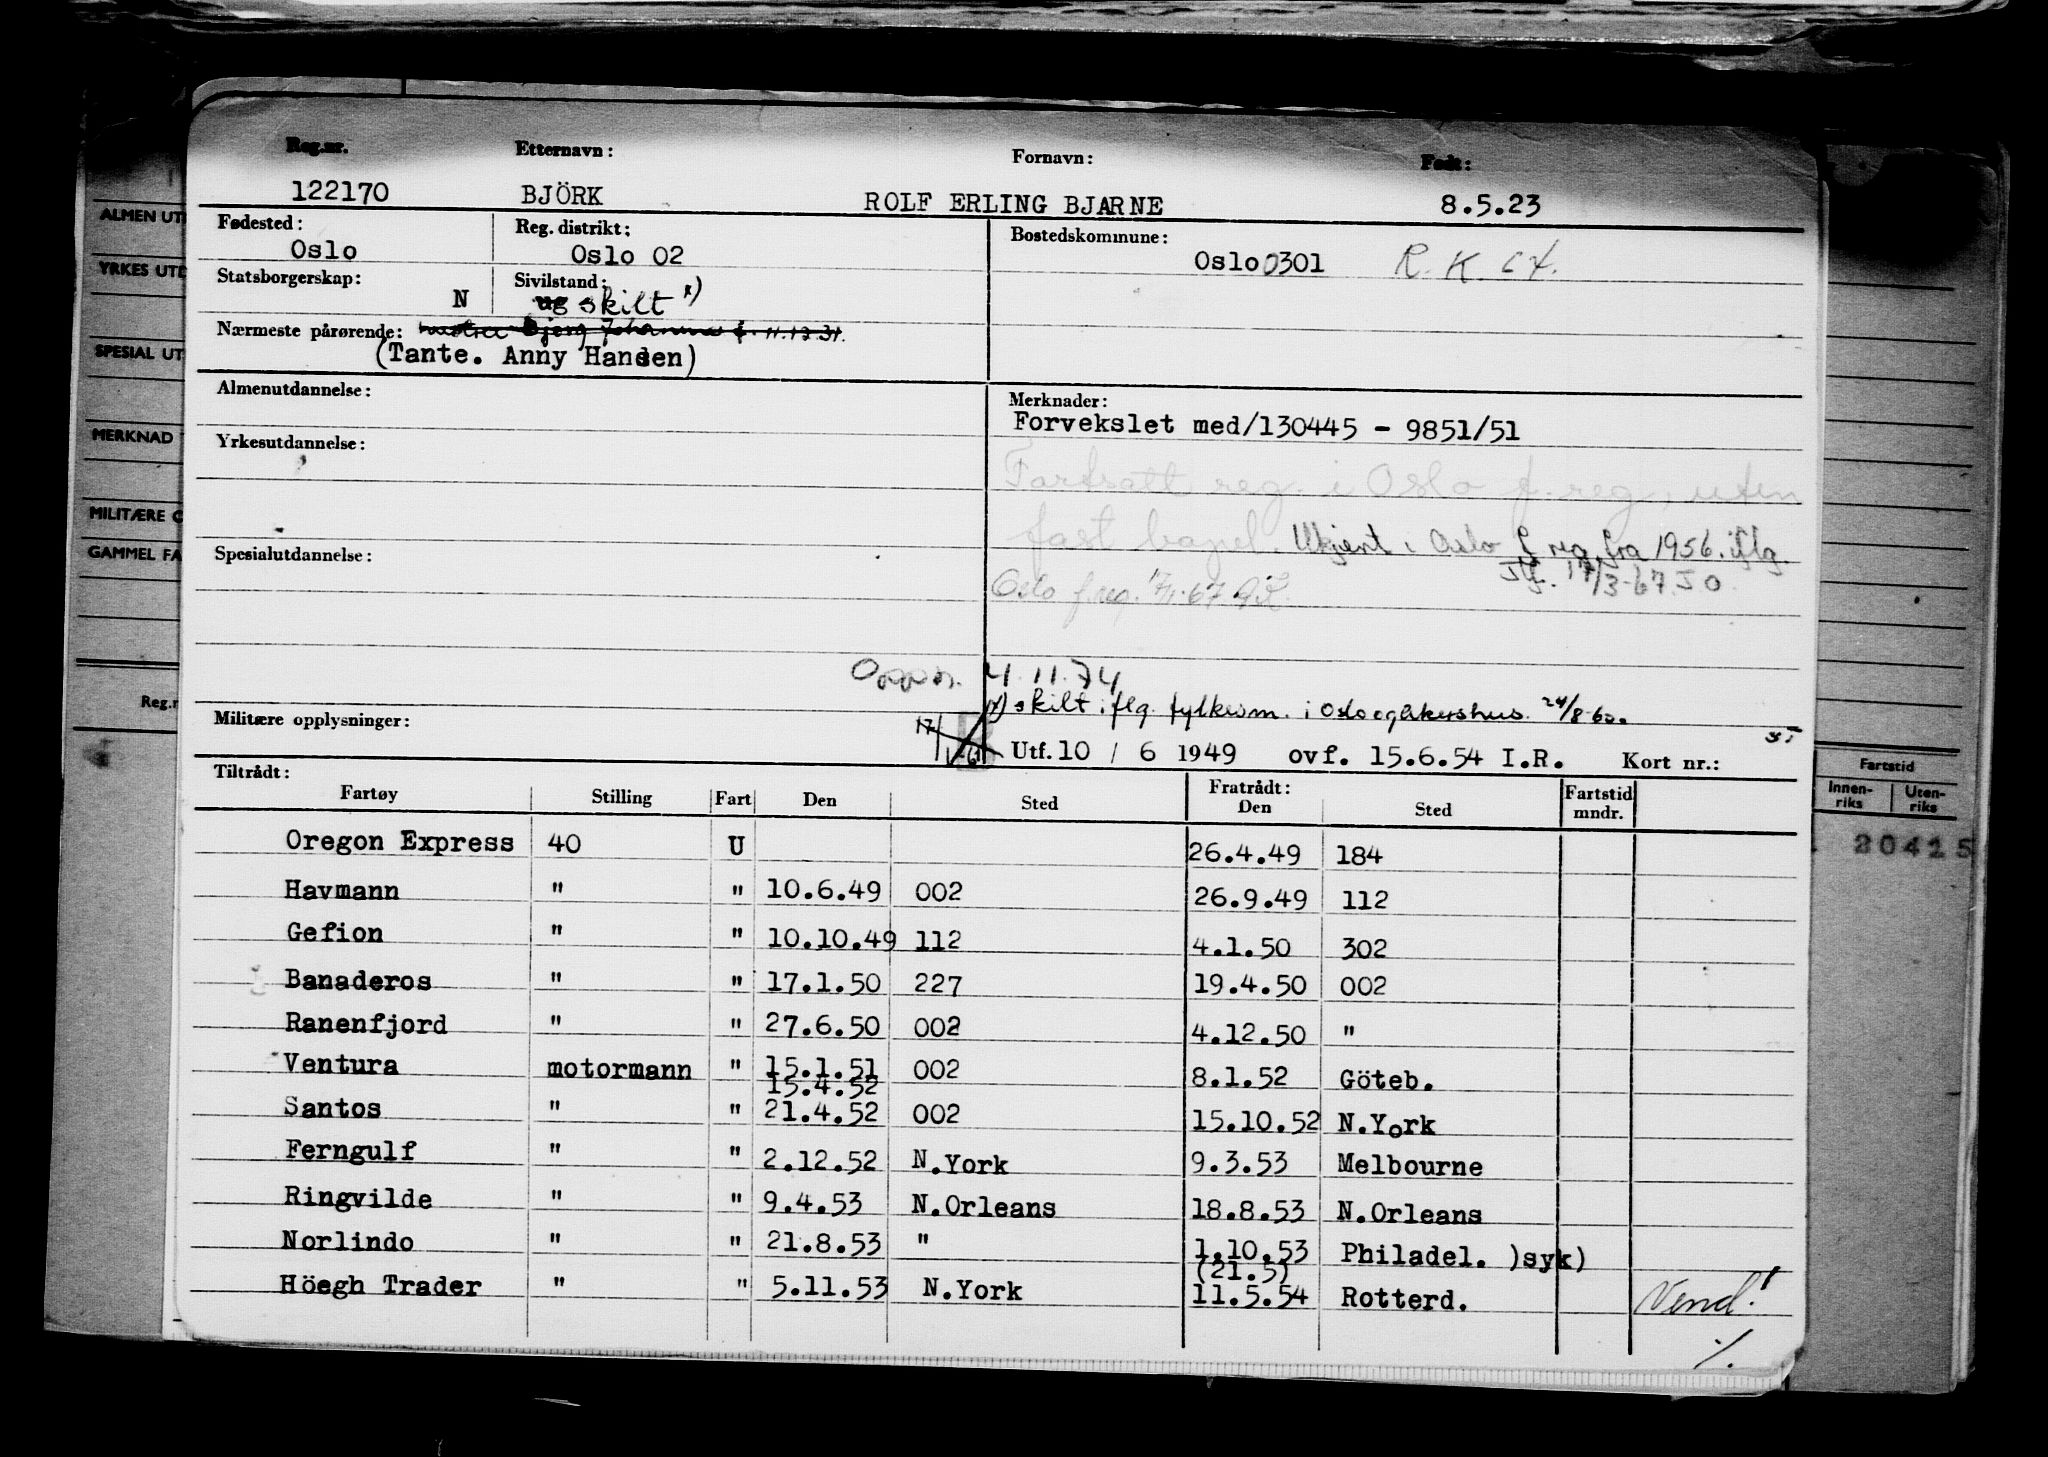 Reg.nr. Etternavn: Fornavn: Født:
122170 BJÖRK ROLF ERLING BJARNE 8.5.23
Fødested: Reg. distrikt: Bostedskommune:
Oslo Oslo 02 Oslo 0301 R. K.
Statsborgerskap: Sivilstand:
N ug skilt x)
Nærmeste pårørende: hustru Bjørg Johanna f. 11.12.31.
(Tante. Anny Hansen)
Almenutdannelse: Merknader:
Forvekslet med/130445 - 9851/51
Yrkesutdannelse:
Fortsatt reg. i Oslo f.reg, uten
fast bopel. Ukjent i Oslo f reg fra 1956. iflg.
Spesialutdannelse: 17/3-67 J O
Oslo f.reg. 67
Oppn. 4.11.74
x) skilt iflg. fylkesm. i Oslo og Akershus 24/8-60.
Militære opplysninger:
Utf. 10 / 6 1949 ovf. 15.6.54 I.R. Kort nr.:
Tiltrådt: Fratrådt:
Fartøy Stilling Fart Den Sted Den Sted Fartstid mndr.
Oregon Express 40 U 26.4.49 184
Havmann " " 10.6.49 002 26.9.49 112
Gefion " " 10.10.49 112 4.1.50 302
Banaderos " " 17.1.50 227 19.4.50 002
Ranenfjord " " 27.6.50 002 4.12.50 "
Ventura motormann " 15.1.51 002 8.1.52 Göteb.
15.4.52
Santos " " 21.4.52 002 15.10.52 N.York
Ferngulf " " 2.12.52 N.York 9.3.53 Melbourne
Ringvilde " " 9.4.53 N.Orleans 18.8.53 N.Orleans
Norlindo " " 21.8.53 " 1.10.53 Philadel. )syk)
(21.5)
Höegh Trader " " 5.11.53 N.York 11.5.54 Rotterd. Vend!
./.
ALMEN UT
YRKES UTD
SPESIAL UT
MERKNAD
MILITÆRE O
GAMMEL FA
Reg.n
Fartstid
Innen-riks Uten-riks
20415